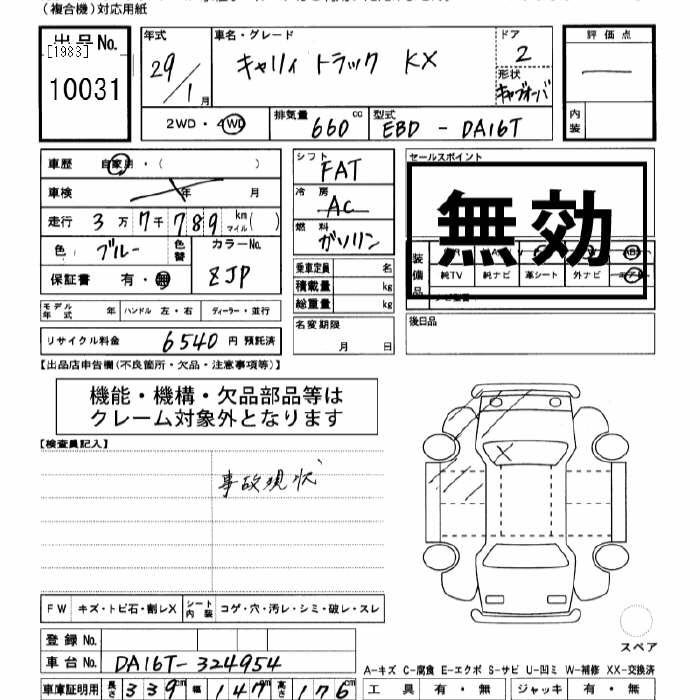 （複合機）対応用紙
出品No.
[1983]
10031
年式
29/1月
車名・グレード
キャリィ トラック KX
ドア
2
形状
キャブオーバ
評価点
内装
2WD・4WD
排気量 660 cc
型式 EBD - DA16T
車歴 自家用・( )
車検 年 月
走行 3万7千789 km マイル( )
色 ブルー 色替
カラーNo. ZJP
保証書 有・無
モデル年式 年 ハンドル 左・右 ディーラー・並行
リサイクル料金 6540 円 預託済
シフト FAT
冷房 AC
燃料 ガソリン
乗車定員 名
積載量 kg
総重量 kg
名変期限
月 日
セールスポイント
無効
装備品
純TV 純ナビ 革シート 外ナビ
後日品
【出品店申告欄(不良箇所・欠品・注意事項等)】
機能・機構・欠品部品等は
クレーム対象外となります
【検査員記入】
事故現状
X
FW キズ・トビ石・割レX シート内装 コゲ・穴・汚レ・シミ・破レ・スレ
登録No.
車台No. DA16T-324954
車庫証明用 長さ 339cm 幅 147cm 高さ 176cm
スペア
A-キズ C-腐食 E-エクボ S-サビ U-凹ミ W-補修 XX-交換済
工具 有・無 ジャッキ 有・無